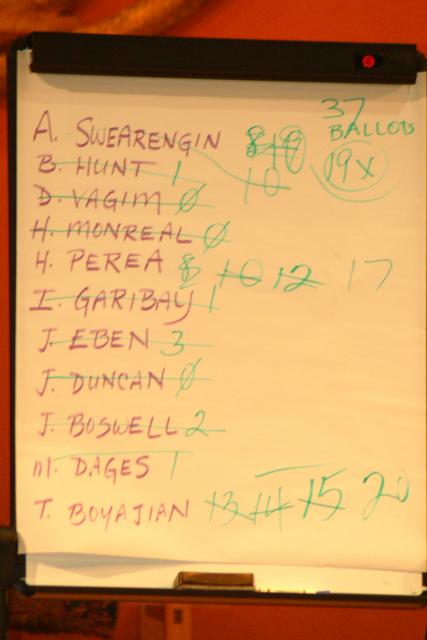 37
BALLOTS
19x
A. SWEARENGIN 8 10
B. HUNT 1 10
D. VAGIM 0
H. MONREAL 0
H. PEREA 8 10 12 17
I. GARIBAY 1
J. EBEN 3
J. DUNCAN 0
J. BOSWELL 2
M. DAGES 1
T. BOYAJIAN 13 14 15 20